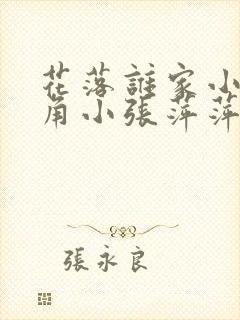 花落誰家小
角小張萍萍
張永良